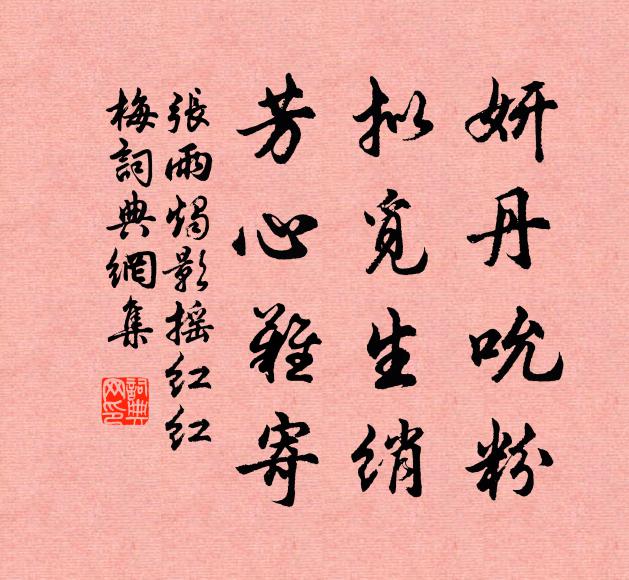 妍丹吮粉
拟觅生绡
芳心难寄
張雨燭影摇红红
梅詞典網集
詞典网印